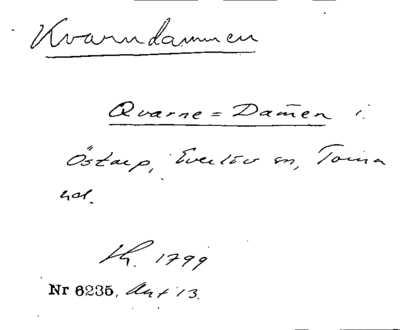 Kvarndammen
Qvarne=Dam̄en i
Östarp, Everlöv sn, Torna
hd.
Lh. 1799
Nr 6235. Akt 13.